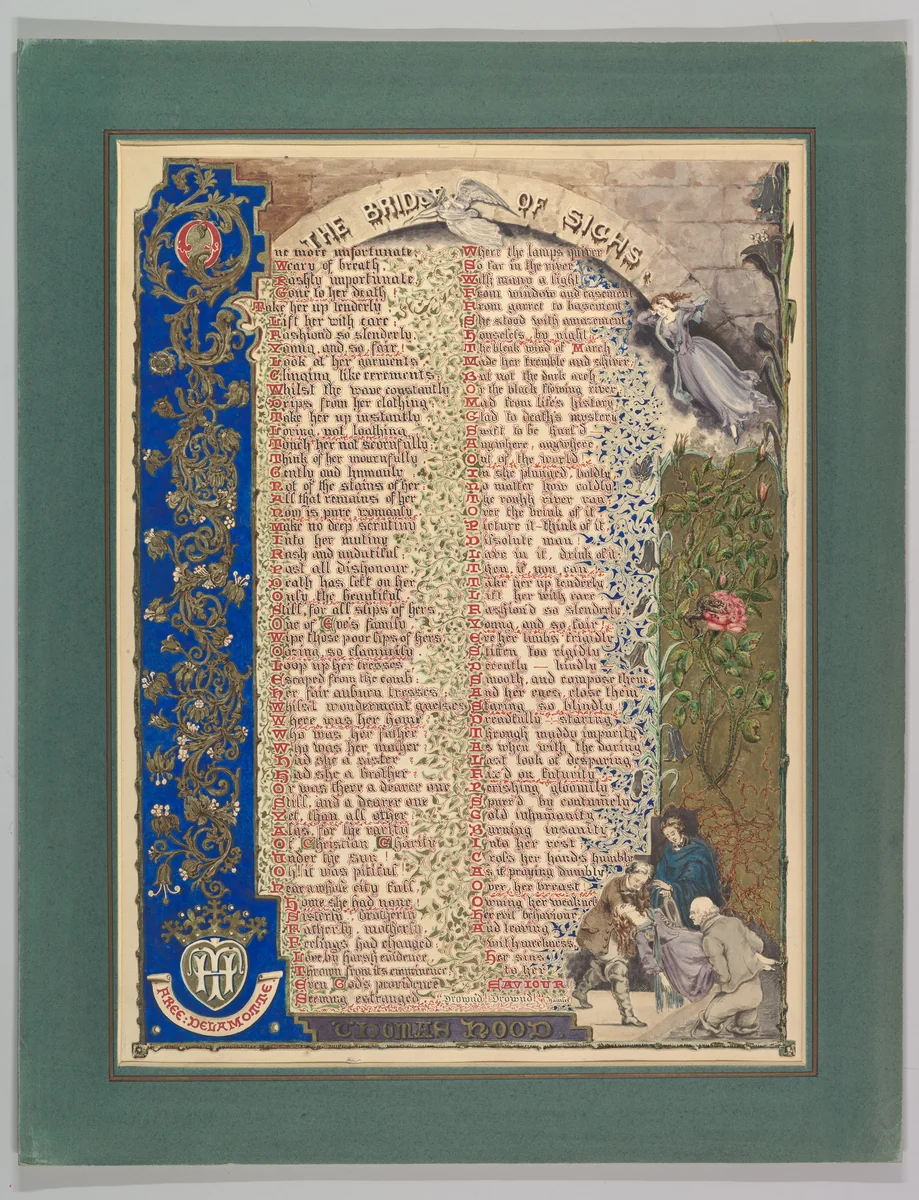 THE BRIDGE OF SIGHS.
One more unfortunate,
Weary of breath,
Rashly importunate,
Gone to her death
Take her up tenderly
Lift her with care;
Fashiond so slenderly,
Young, and so fair!
Look at her garments
Clinging like cerements;
Whilst the wave constantly
Drips from her clothing;
Take her up instantly
Loving, not loathing.
Touch her not scornfully;
Think of her mournfully
Gently and humanly
Not of the stains of her
All that remains of her
Now is pure womanly.
Make no deep scrutiny
Into her mutiny
Rash and undutiful;
Past all dishonour
Death has left on her
Only the beautiful.
Still, for all slips of hers
One of Eve's family
Wipe those poor lips of hers
Oozing, so clammily
Loop up her tresses
Escaped from the comb:
Her fair auburn tresses;
Whilst wonderment guesses
Where was her home
Who was her father
Who was her mother
Had she a sister
Had she a brother
Or was there a dearer one
Still, and a dearer one
Yet, than all other
Alas, for the rarity
Of Christian Charity
Under the sun
Oh! it was pitiful
Near a whole city full,
Home she had none,
Sisterly, brotherly
Fatherly motherly
Feelings had changed
Love, by harsh evidence
Thrown from its eminence
Even Gods providence
Seeming estranged
Where the lamps quiver
So far in the river,
With many a light
From window and casement
From garret to basement
She stood with amazement
Houseless, by night
The bleak wind of March
Made her tremble and shiver
But not the dark arch
Or the black flowing river
Mad from life's history
Glad to death's mystery
Swift to be hurl'd—
Anywhere, anywhere
Out of the world
In she plunged, boldly,
No matter how coldly
The rough river ran
Over the brink of it
Picture it—think of it
Dissolute man
Lave in it, drink of it
Then, if you can
Take her up tenderly
Lift her with care
Fashion'd so slenderly
Young, and so fair!
Ere her limbs frigidly
Stiffen too rigidly
Decently — kindly
Smooth, and compose them
And her eyes, close them
Staring so blindly
Dreadfully staring,
Through muddy impurity
As when with the daring
Last look of despairing
Fix'd on futurity
Perishing gloomily
Spurr'd by contumely
Cold inhumanity
Burning insanity
Into her rest
Cross her hands humbly
As if praying dumbly
Over her breast
Owning her weakness
Her evil behaviour
And leaving
with meekness,
Her sins
to her
SAVIOUR
Drown'd! Drown'd!
Hamlet
THOMAS HOOD
FREE: DELAMOTTE